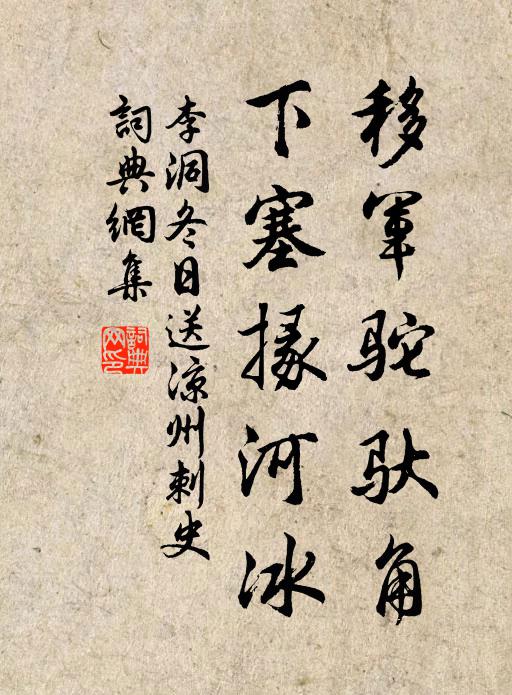 移军驼驮角
下塞掾河冰
李洞冬日送凉州刺史
詞典網集
詞典网印